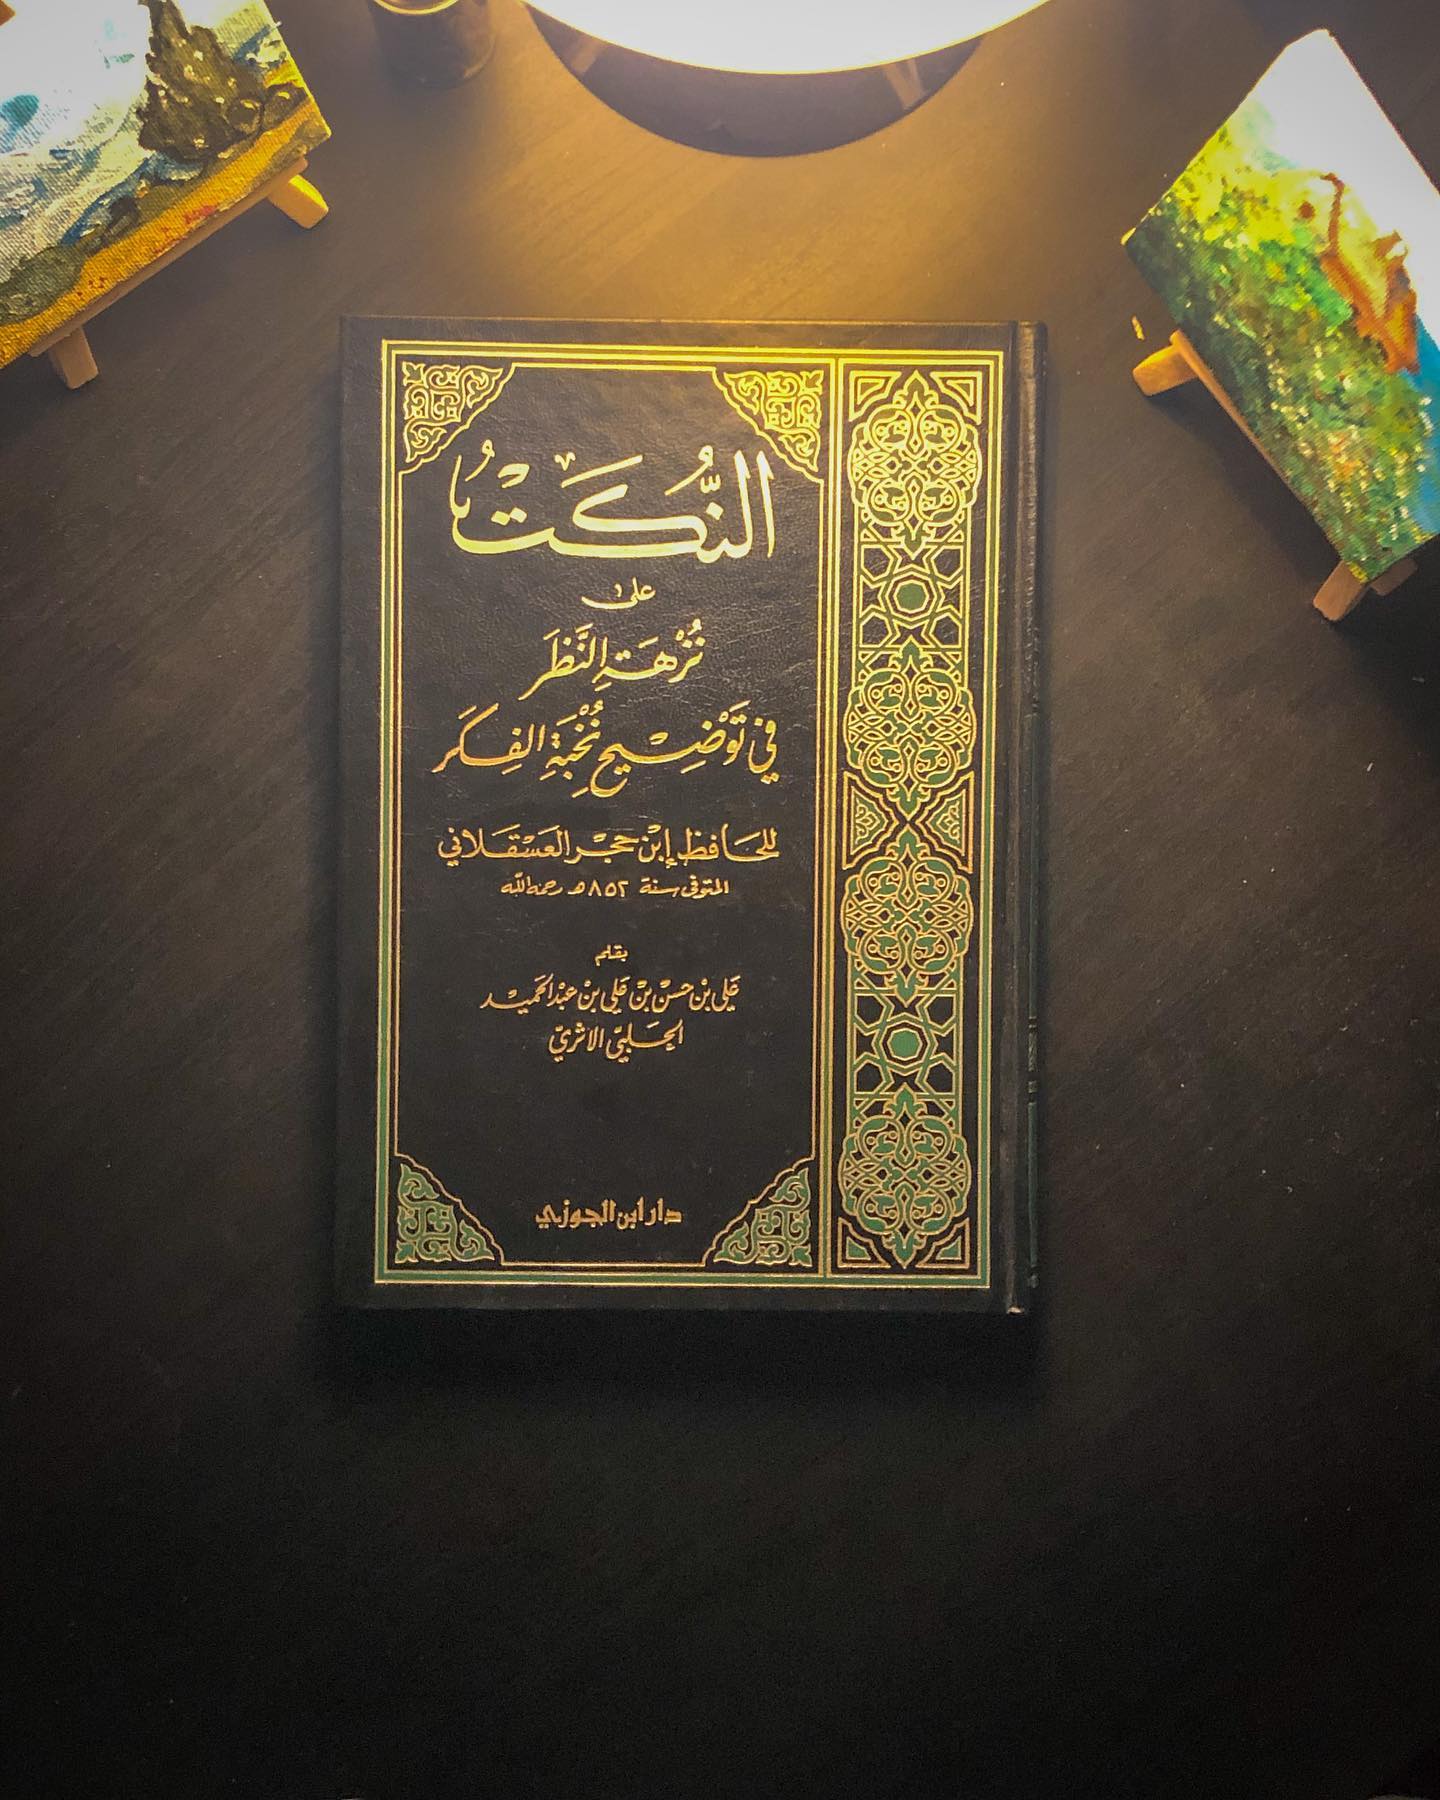 النُّكَتُ
على
نُزْهَةِ النَّظَرِ
في تَوْضِيحِ نُخْبَةِ الفِكَر
للحافظ إبن حجر العسقلاني
المتوفى سنة ٨٥٢ هـ رحمه الله
بقلم
علي بن حسن بن علي بن عبد الحميد
الحلبي الاثري
دار ابن الجوزي